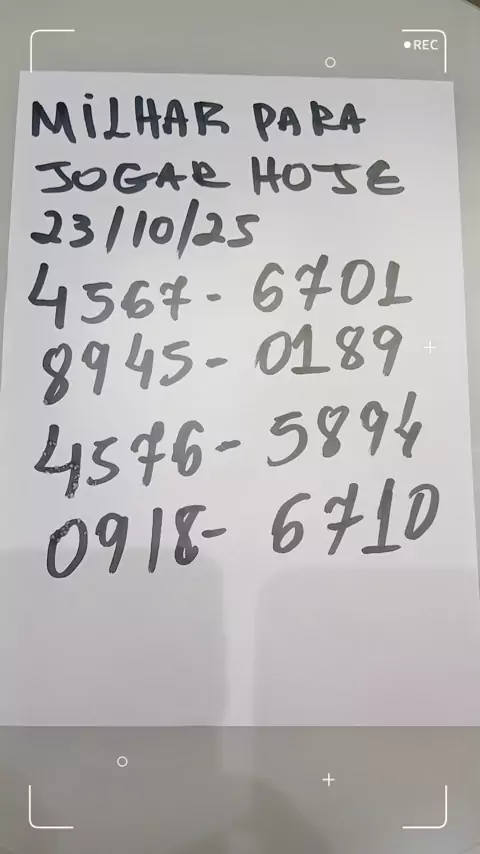 REC
MILHAR PARA
JOGAR HOJE
23/10/25
4567- 6701
8945- 0189
4576- 5894
0918- 6710